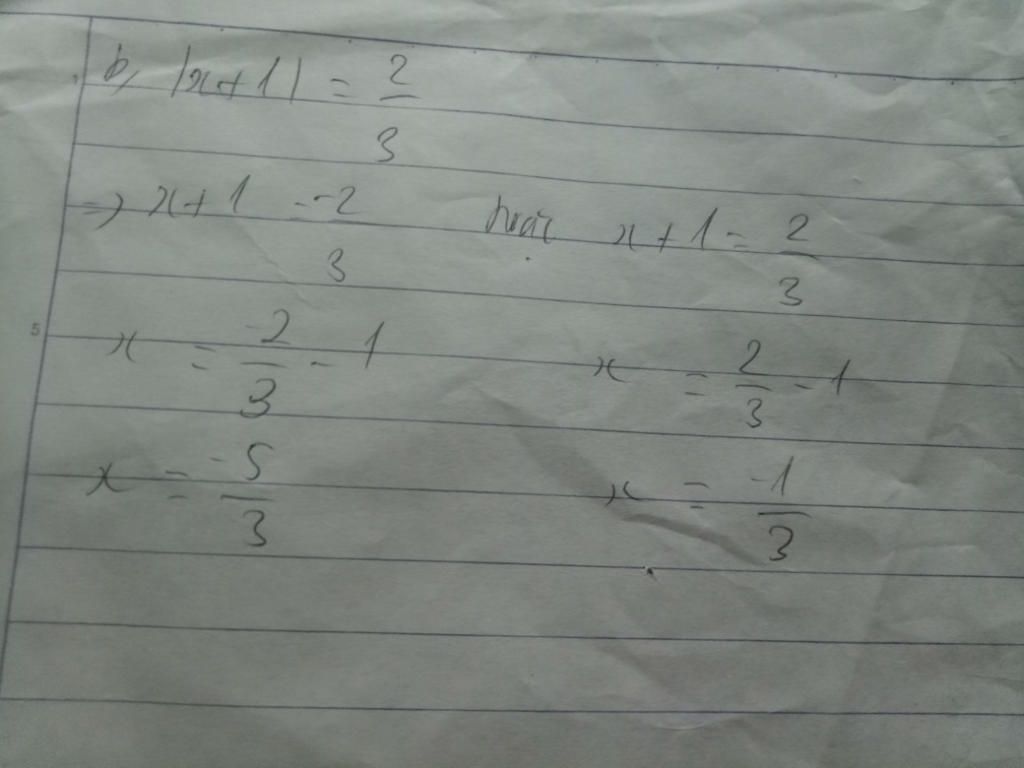 b, |x+1| = 2/3
=> x+1 = -2/3 hoặc x+1 = 2/3
x = -2/3 - 1 x = 2/3 - 1
5
x = -5/3 x = -1/3